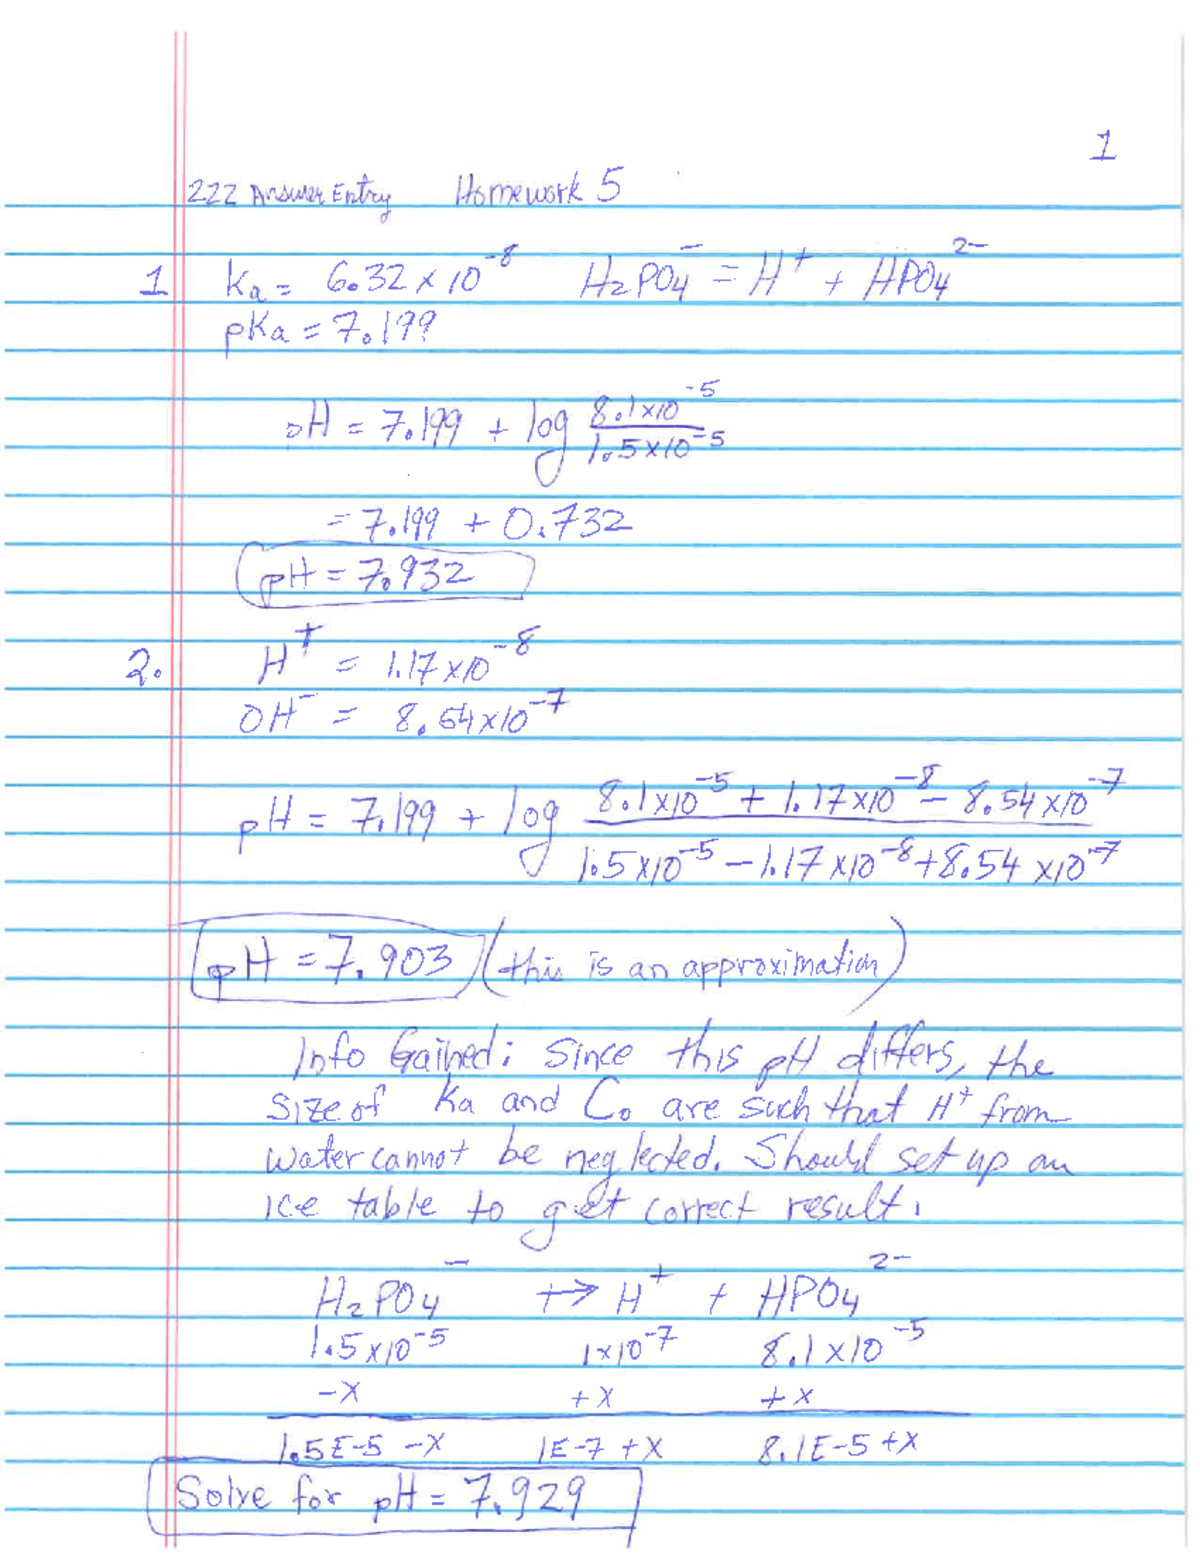 1
222 Answer Entry Homework 5
1 Ka = 6.32 x 10^-8 H2PO4^- = H^+ + HPO4^2-
pKa = 7.199
pH = 7.199 + log 8.1x10^-5 / 1.5x10^-5
= 7.199 + 0.732
pH = 7.932
2. H^+ = 1.17x10^-8
OH^- = 8.54x10^-7
pH = 7.199 + log 8.1x10^-5 + 1.17x10^-8 - 8.54x10^-7 / 1.5x10^-5 - 1.17x10^-8 + 8.54x10^-7
pH = 7.903 (this is an approximation)
Info Gained: Since this pH differs, the
size of Ka and Co are such that H^+ from
water cannot be neglected. Should set up an
ice table to get correct result.
H2PO4^- +> H^+ + HPO4^2-
1.5x10^-5 1x10^-7 8.1x10^-5
-x +x +x
1.5E-5 -x 1E-7 +x 8.1E-5 +x
Solve for pH = 7.929